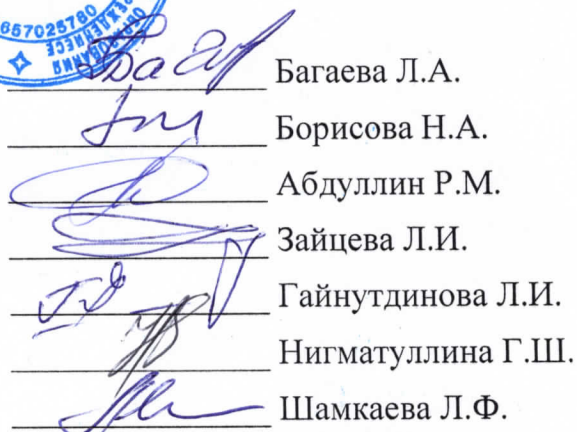 657025780
Багаева Л.А.
Борисова Н.А.
Абдуллин Р.М.
Зайцева Л.И.
Гайнутдинова Л.И.
Нигматуллина Г.Ш.
Шамкаева Л.Ф.